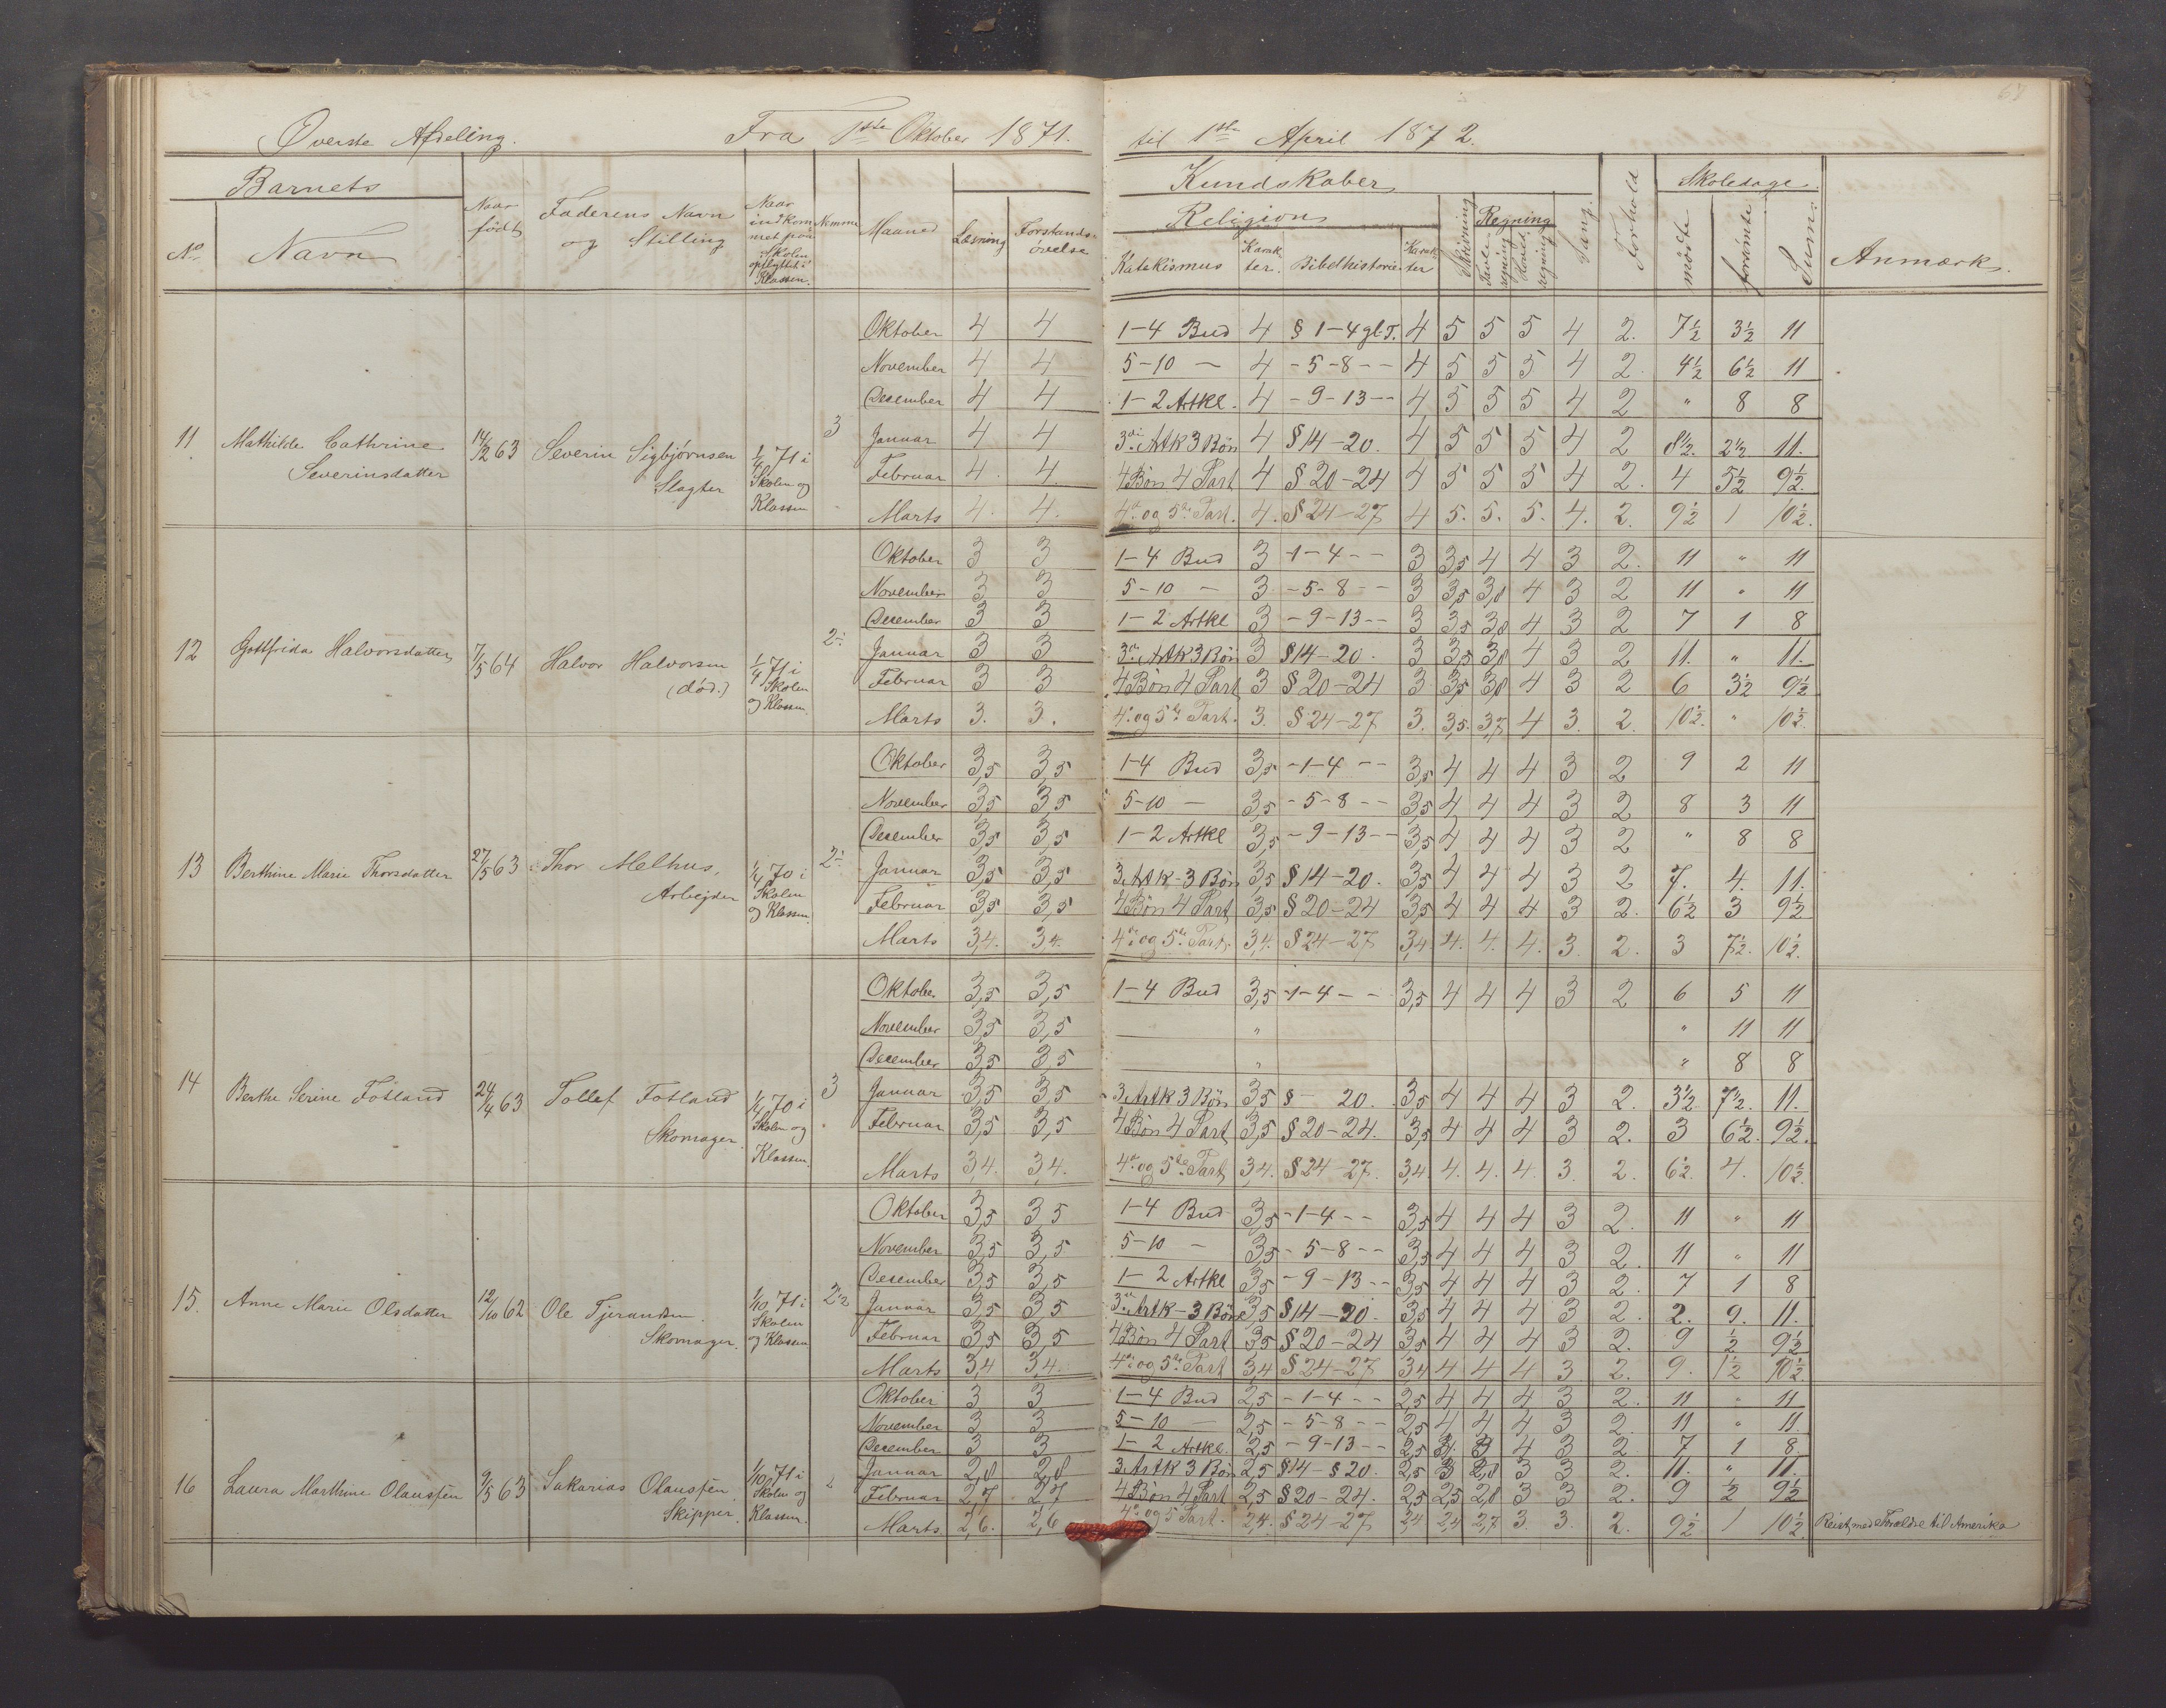 Øverste Afdeling. Fra 1ste Oktober 1871. til 1ste April 1872.
67
Barnets Kundskaber Skoledage.
No Navn Naar født Faderens Navn og Stilling Naar indkommet paa Skolen opflyttet i Klassen. Nemme Maaned Læsning Forstandsøvelse Religion Katekismus Karakter. Bibelhistorie Karakter Skrivning Regning Tavleregning Hovedregning Sang. Forhold mødte forsømte Sum. Anmærk.
Oktober 4 4 1-4 Bud 4 § 1-4 gl.T. 4 5 5 5 4 2. 7½ 3½ 11
November 4 4 5-10 — 4 -5-8-- 4 5 5 5 4 2. 4½ 6½ 11
Desember 4 4 1-2 Artkl. 4 -9-13-- 4 5 5 5 4 2 " 8 8
11. Mathilde Cathrine Severinsdatter 14/12 63 Severin Sigbjørnsen Slagter 1/4 71 i Skolen og Klassen 3
Januar 4 4 3die Artk 3 Bøn 4 § 14-20. 4 5 5 5 4 2 8½. 2½ 11.
Februar 4. 4. 4 Bøn 4 Part 4 § 20-24 4 5 5 5 4 2. 4 5½ 9½.
Marts 4. 4. 4de og 5te Part. 4. § 24-27 4 5. 5. 5. 4. 2. 9½ 1 10½.
Oktober 3 3 1-4 Bud 3 -1-4-- 3 3,5 4 4 3 2. 11 " 11
November 3 3 5-10 — 3 -5-8-- 3 3,5 3,8 4 3 2 11 " 11
Desember 3 3 1-2 Artkl 3 -9-13-- 3 3,5 3,8 4 3 2 7 1 8
12 Gottfrida Halvorsdatter 7/5 64 Halvor Halvorsen (død.) 1/4 71 i Skolen og Klassen. 2÷
Januar 3 3 3die Artk 3 Bøn 3 § 14-20. 3 3,5 3,8 4 3 2 11. " 11.
Februar 3 3 4 Bøn 4 Part 3 § 20-24 3 3,5 3,8 4 3 2 6 3½ 9½
Marts 3. 3. 4. og 5te Part. 3. § 24-27 3. 3,5. 3,7 4 3. 2. 10½. " 10½.
Oktober 3,5 3,5 1-4 Bud 3,5 -1-4-- 3,5 4 4 4 3 2 9 2 11
November 3,5 3,5 5-10 — 3,5 -5-8-- 3,5 4 4 4 3 2 8 3 11
Desember 3,5 3,5 1-2 Artkl 3,5 -9-13-- 3,5 4 4 4 3 2 " 8 8
13 Berthine Marie Thorsdatter 27/5 63 Thor Melhus, Arbejder 1/4 70 i Skolen og Klassen 2÷
Januar 3,5 3,5 3 Artk-3 Bøn 3,5 § 14-20. 3,5 4 4 4 3 2 7. 4. 11.
Februar 3,5 3,5 4 Bøn 4 Part 3,5 § 20-24 3,5 4 4 4 3 2. 6½ 3 9½
Marts 3,4. 3,4. 4de og 5te Part. 3,4. § 24-27 3,4 4. 4. 4. 3. 2. 3 7½. 10½.
Oktober 3,5 3,5 1-4 Bud 3,5 -1-4-- 3,5 4 4 4 3 2 6 5 11
November 3,5 3,5 " " 11 11
Desember 3,5 3,5 " " 8 8
14 Berthe Serine Fotland 24/4 63 Tollef Fotland Skomager. 1/4 70 i Skolen og Klassen. 3
Januar 3,5 3,5 3 Artk 3 Bøn 3,5 § - 20. 3,5 4 4 4 3 2. 3½ 7½. 11.
Februar 3,5 3,5 4 Bøn 4 Part 3,5 § 20-24. 3,5 4 4 4 3 2. 3 6½. 9½.
Marts 3,4. 3,4. 4de og 5te Part 3,4. § 24-27. 3,4. 4. 4. 4. 3. 2. 6½. 4. 10½.
Oktober 3,5 3,5 1-4 Bud 3,5 -1-4-- 3,5 4 4 4 3 2. 11 " 11
November 3,5 3,5 5-10 — 3,5 -5-8-- 3,5 4 4 4 3 2. 11 " 11
Desember 3,5 3,5 1-2 Artkl 3,5 -9-13-- 3,5 4 4 4 3 2. 7 1 8
15. Anne Marie Olsdatter 12/10 62 Ole Tjerandsen. Skomager. 1/10 71 i Skolen og Klassen
Januar 3,5 3,5 3die Artk-3 Bøn 3,5 § 14-20. 3,5 4 4 4 3 2. 2. 9. 11.
Februar 3,5 3,5 4 Bøn 4 Part 3,5 § 20-24 3,5 4 4 4 3 2. 9 ½ 9½
Marts 3,4 3,4. 4de og 5te Part 3,4 § 24-27 3,4 4 4 4 3 2. 9. 1½ 10½.
Oktober 3 3 1-4 Bud 2,5 -1-4-- 2,5 4 4 4 3 2. 11 " 11
November 3 3 5-10 — 2,5 -5-8-- 2,5 4 4 4 3 2. 11 " 11
Desember 3 3 1-2 Artkl. 2,5 -9-13-- 2,5 4 3 2 7 1 8
16 Laura Marthine Olaussen 9/5 63 Sakarias Olaussen Skipper. 1/10 71 i Skolen og Klassen. 2
Januar 2,8 2,8 3 Artk 3 Bøn 2,5 § 14-§ 20. 2,5 3 2,8 3 3 2. 11. " 11.
Februar 2,7 2,7 4 Bøn 4 Part 2,5 § 20-24. 2,5 2,5 2,8 3 3 2. 9 ½ 9½
Marts. 2,6. 2,6 4de og 5 Part. 2,4. § 24-27 2,4 2,4 2,7 3. 3. 2. 9½ 1 10½. Reist med Forældre til Amerika